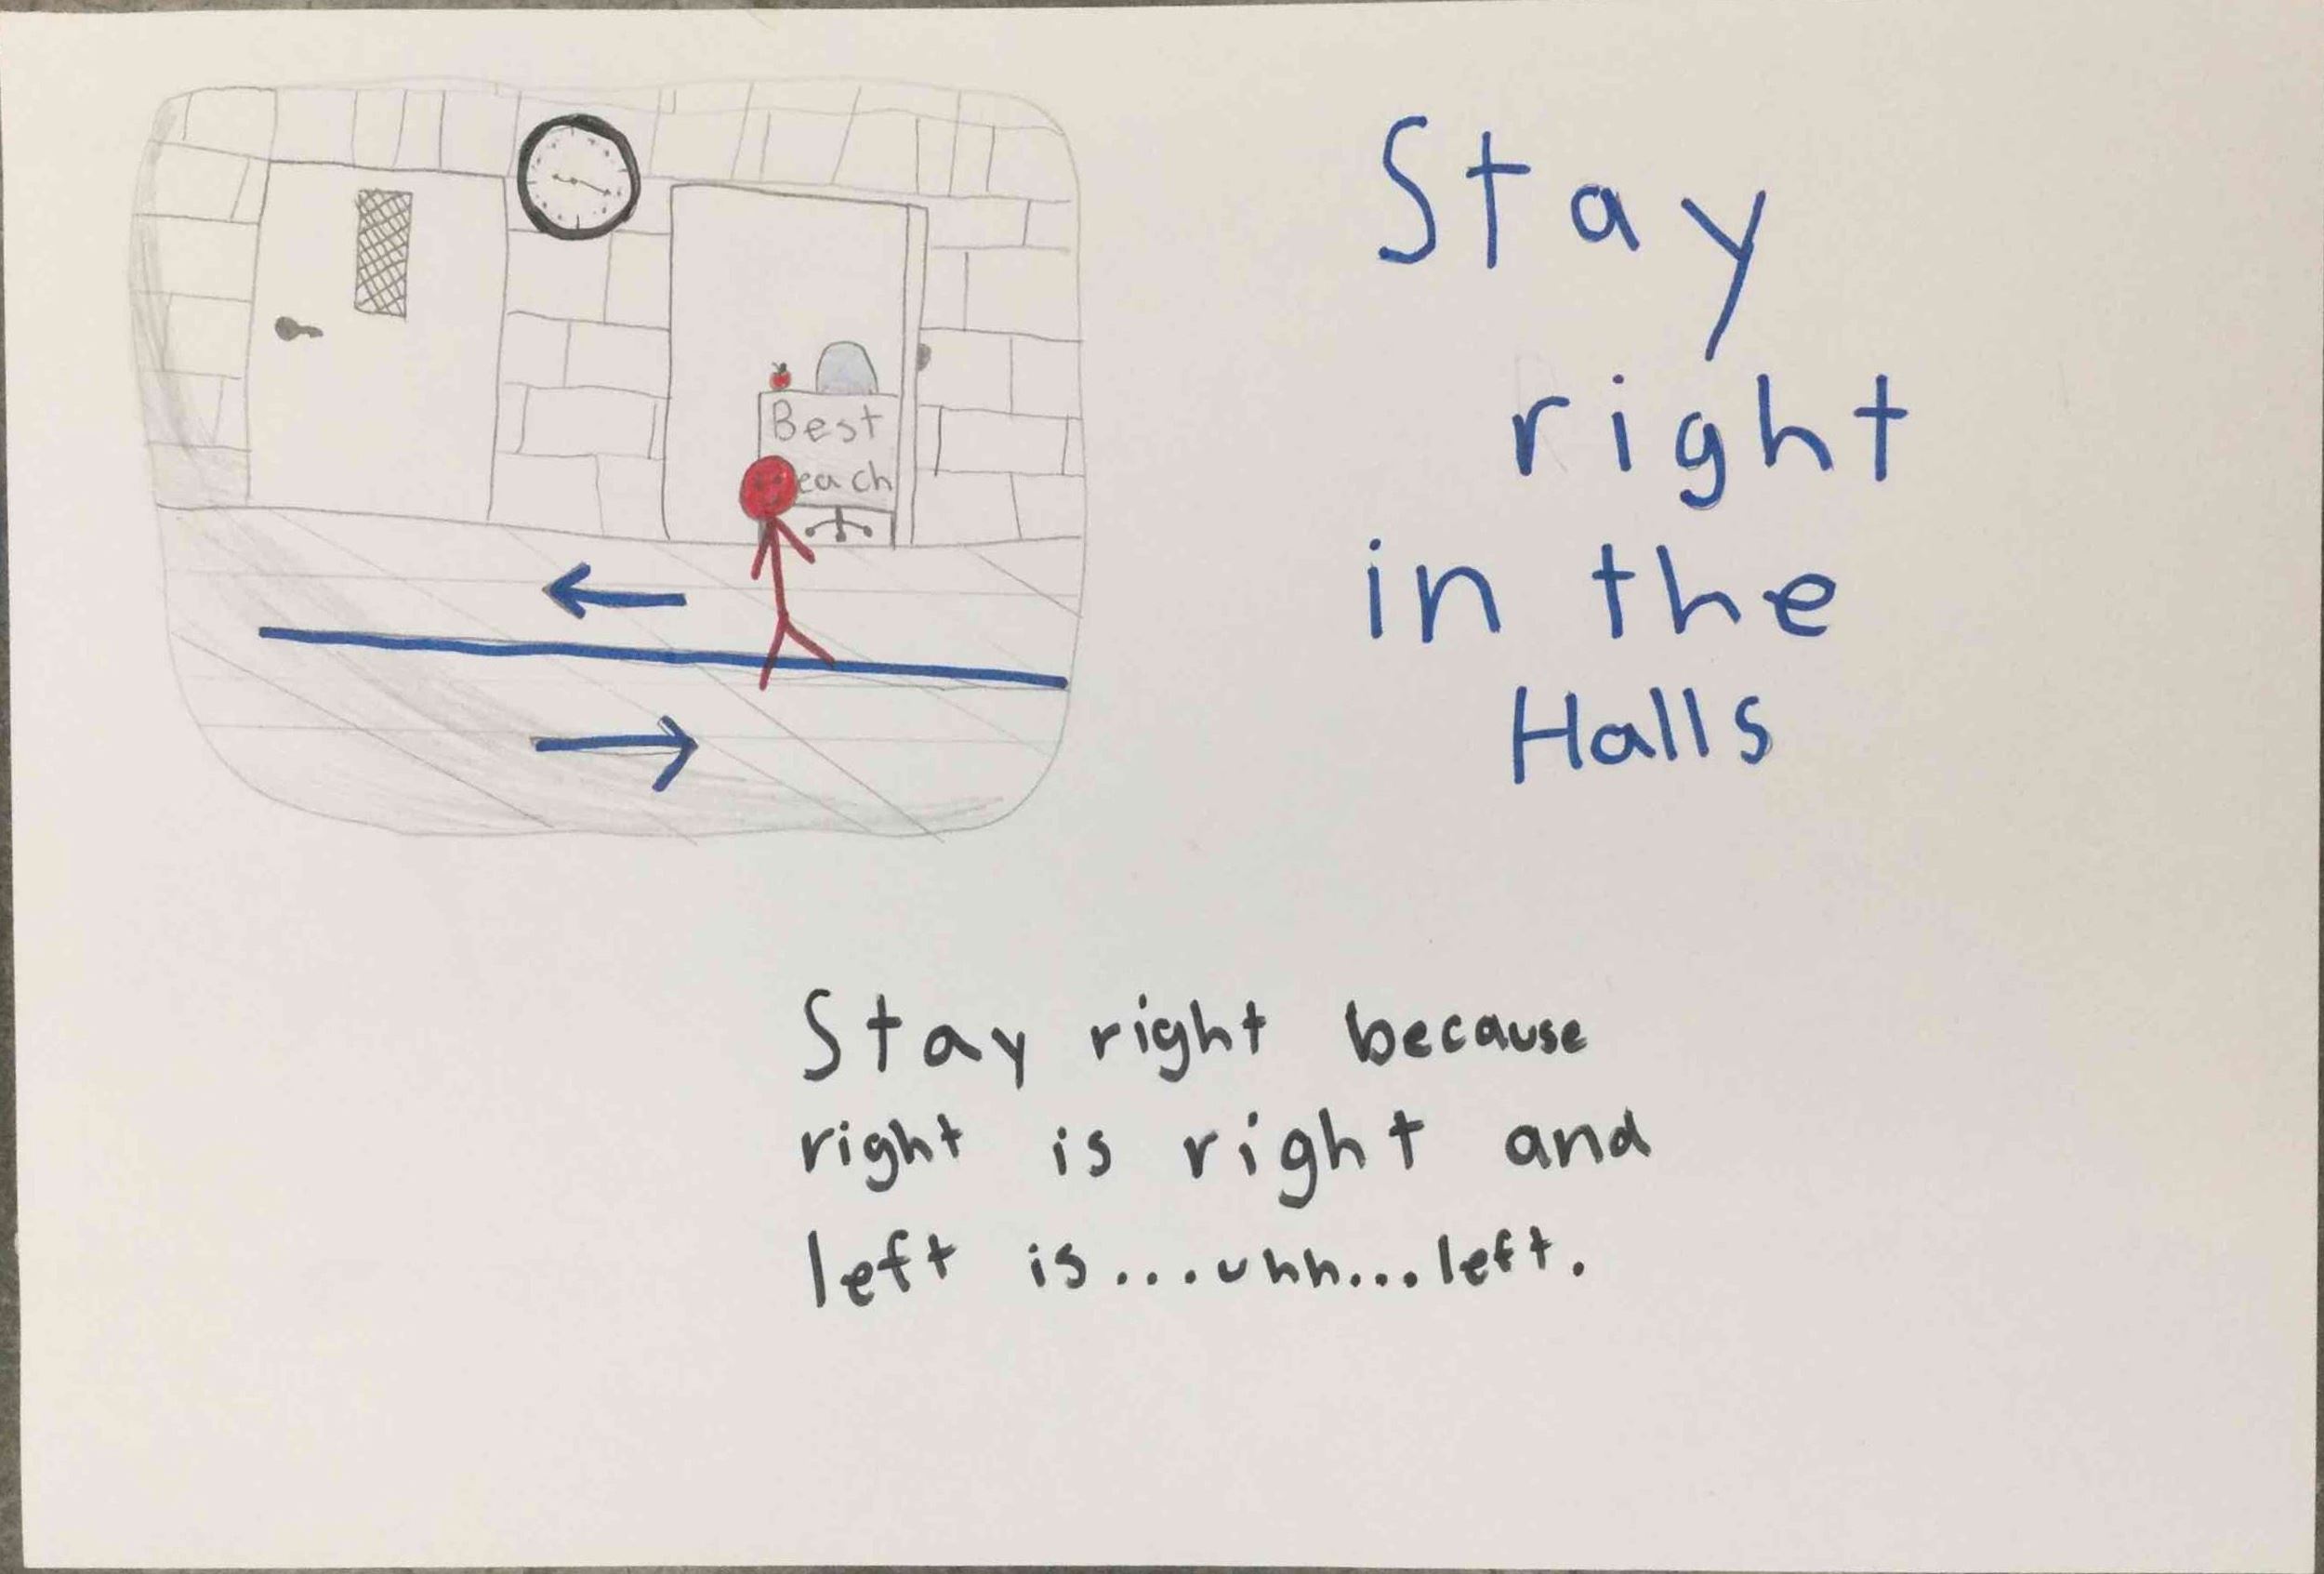 Stay
right
in the
Halls
Best
each
Stay right because
right is right and
left is...uhh...left.